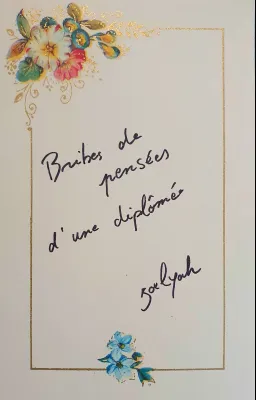 Bribes de
pensées
d'une diplômée